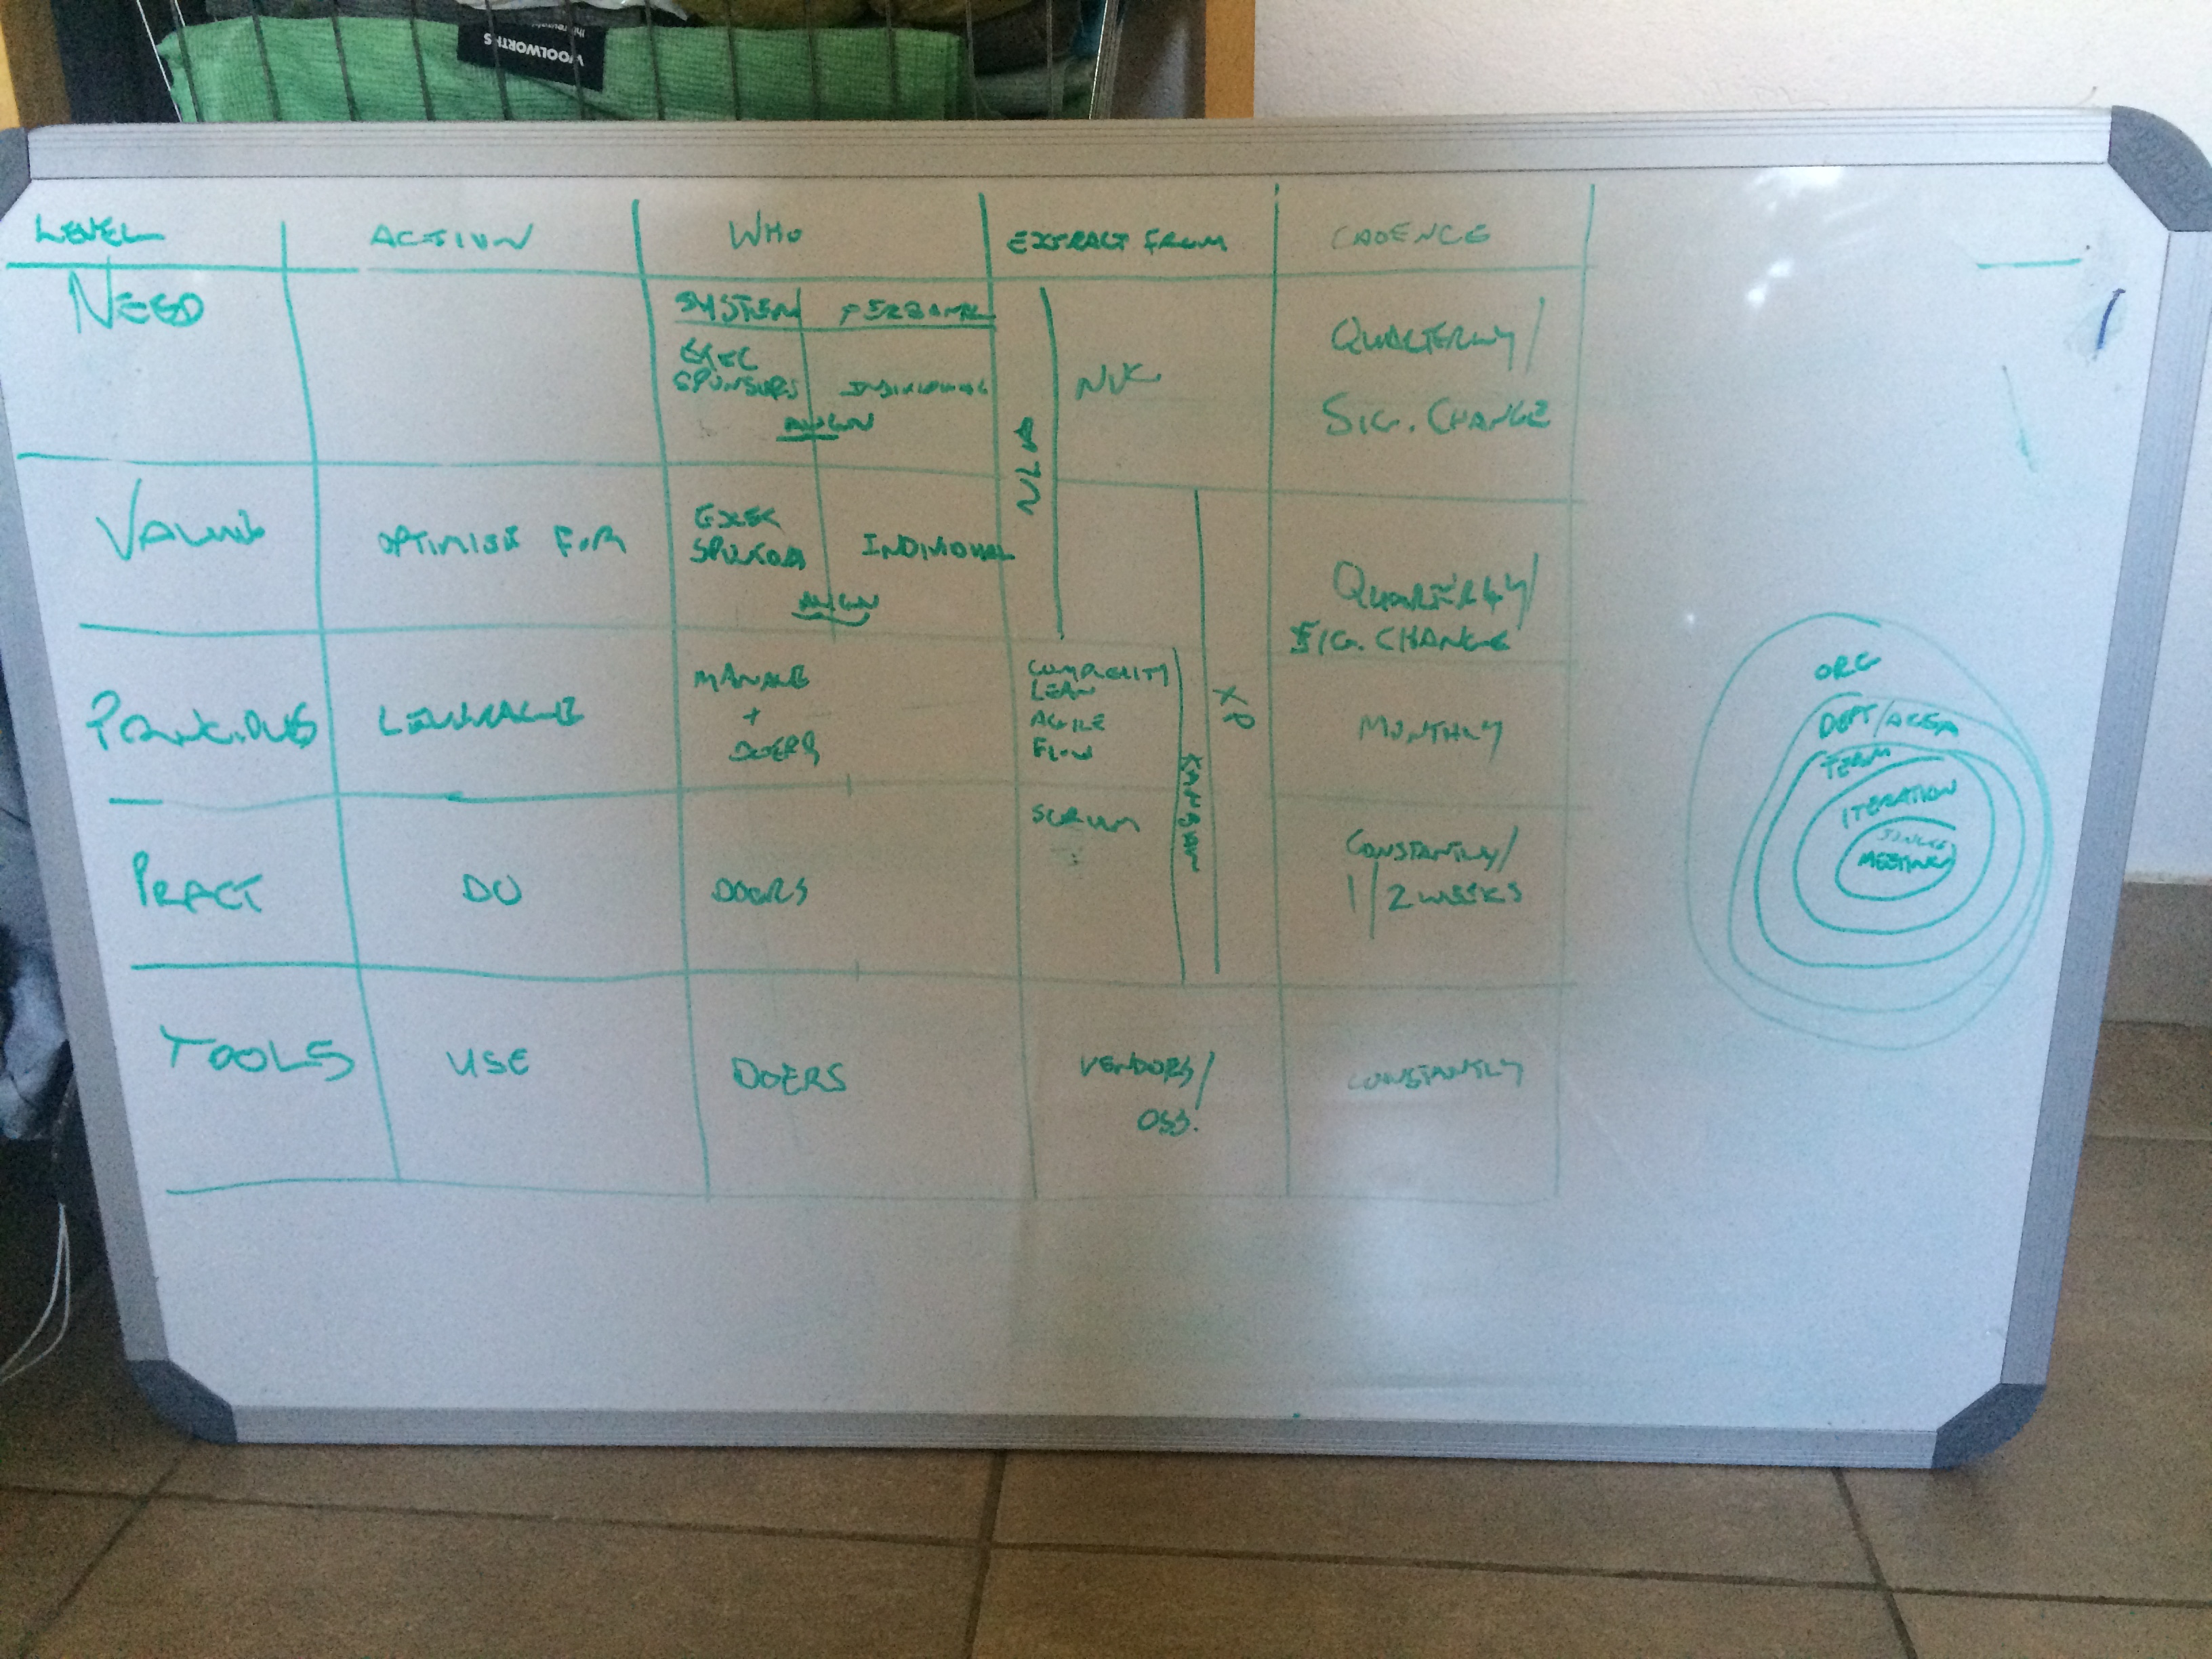 WOOLWORTHS
LEVEL
ACTION
WHO
EXTRACT FROM
CADENCE
NEED
SYSTEM
PERSONAL
EXEC
SPONSORS
INDIVIDUAL
ALIGN
NLP
NVC
QUARTERLY/
SIG. CHANGE
VALUES
OPTIMISE FOR
EXEC
SPONSOR
INDIVIDUAL
ALIGN
XP
QUARTERLY/
SIG. CHANGE
PRINCIPLES
LEVERAGE
MANAGE
+
DOERS
COMPLEXITY
LEAN
AGILE
FLOW
KANBAN
MONTHLY
PRACT
DO
DOERS
SCRUM
CONSTANTLY/
1/2 WEEKS
TOOLS
USE
DOERS
VENDORS/
OSS.
CONSTANTLY
ORG
DEPT/AREA
TEAM
ITERATION
SINGLE
MEETING